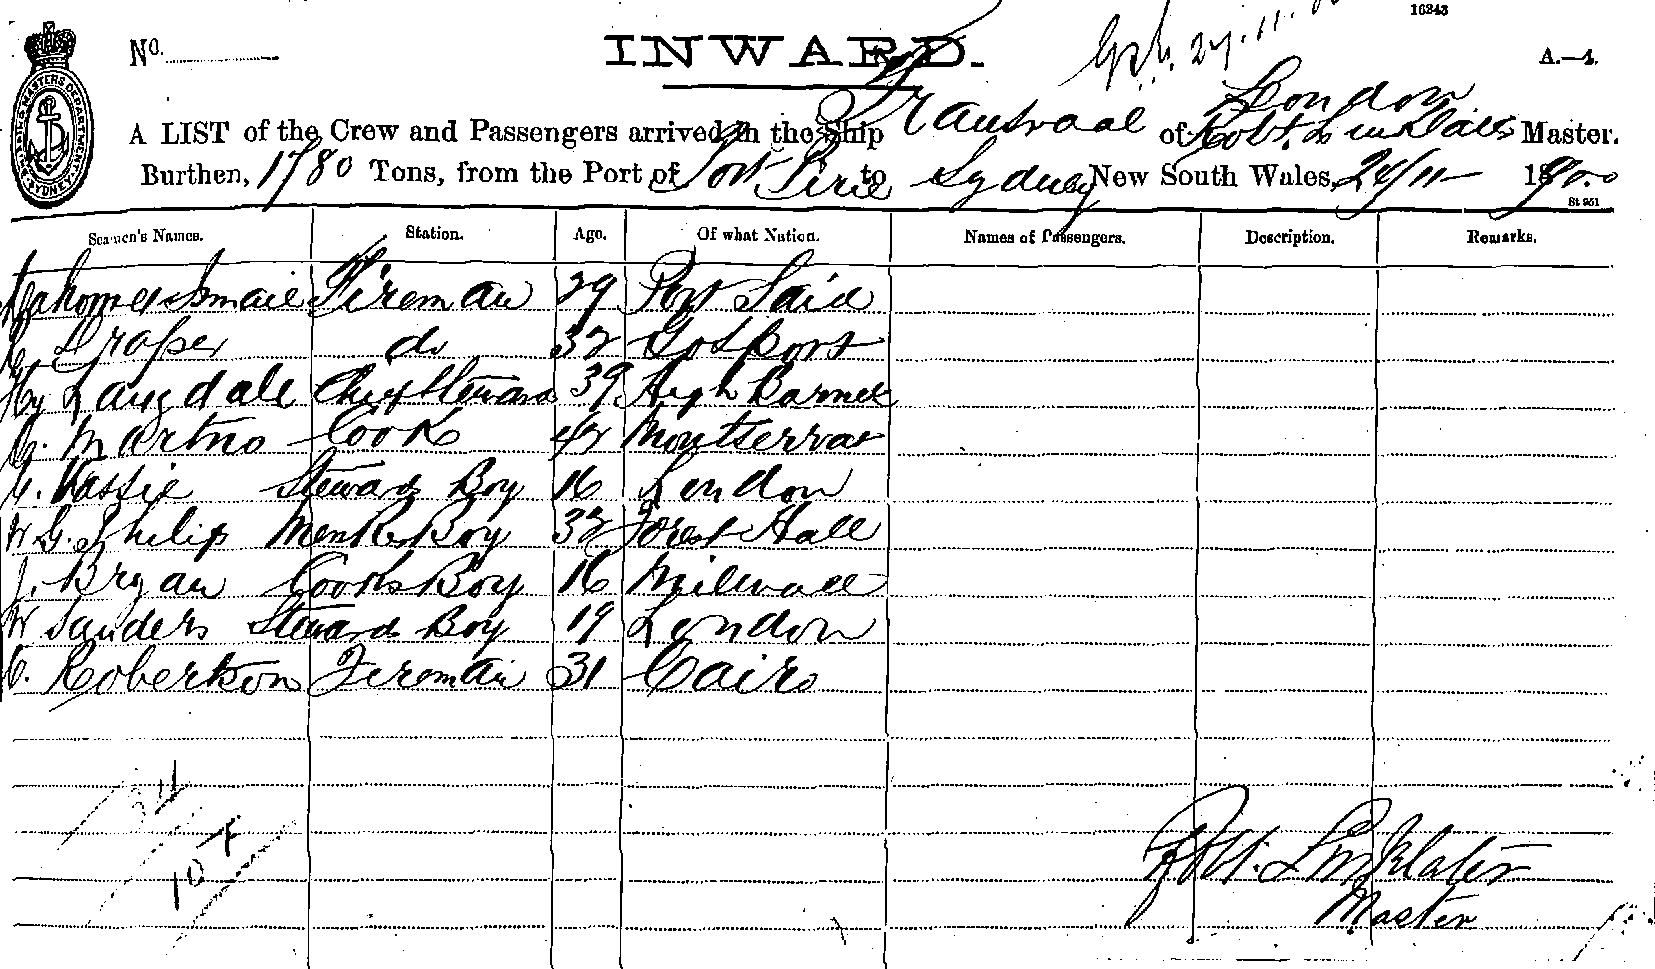 16343
No. INWARD. 24.11. A.—4.
London
A LIST of the Crew and Passengers arrived in the Ship Transvaal of Robt. Linklater Master.
Burthen, 1780 Tons, from the Port of Port Pirie to Sydney New South Wales, 24/11 1900
St 951
Seamen's Names. Station. Age. Of what Nation. Names of Passengers. Description. Remarks.
Mahomed Ismail Fireman 29 Port Said
Draper do 32 Gosport
Hy Langdale Chief Steward 39 High Barnet
G. Martno Cook 42 Montserrat
G. Vassie Stewards Boy 16 London
W. G. Philip Boy 32 Forest Hall
J. Bryan Cooks Boy 16 Milwall
W Sanders Stewards Boy 19 London
C. Robertson Fireman 31 Cairo
34
10 +
Robt. Linklater
Master